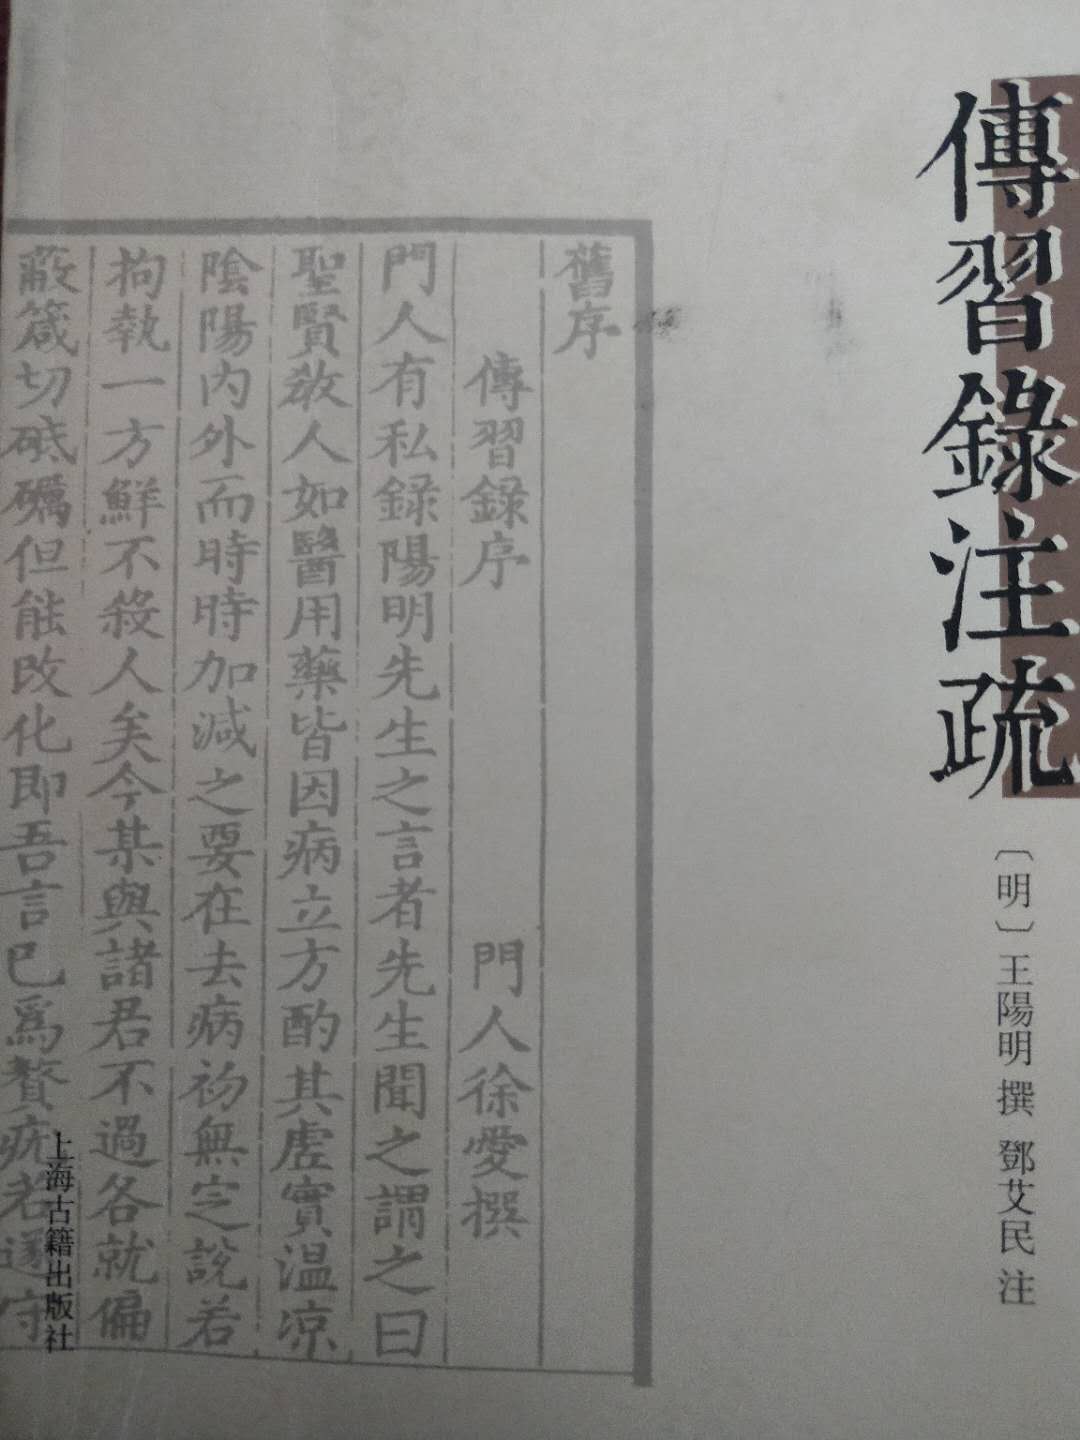 傳習錄注疏
〔明〕王陽明 撰 鄧艾民 注
舊序
傳習録序
門人徐愛撰
門人有私録陽明先生之言者先生聞之謂之曰
聖賢教人如醫用藥皆因病立方酌其虚實温凉
陰陽内外而時時加減之要在去病初無定說若
拘執一方鮮不殺人矣今某與諸君不過各就偏
蔽箴切砥礪但能改化即吾言已爲贅疣若遂守
上海古籍出版社